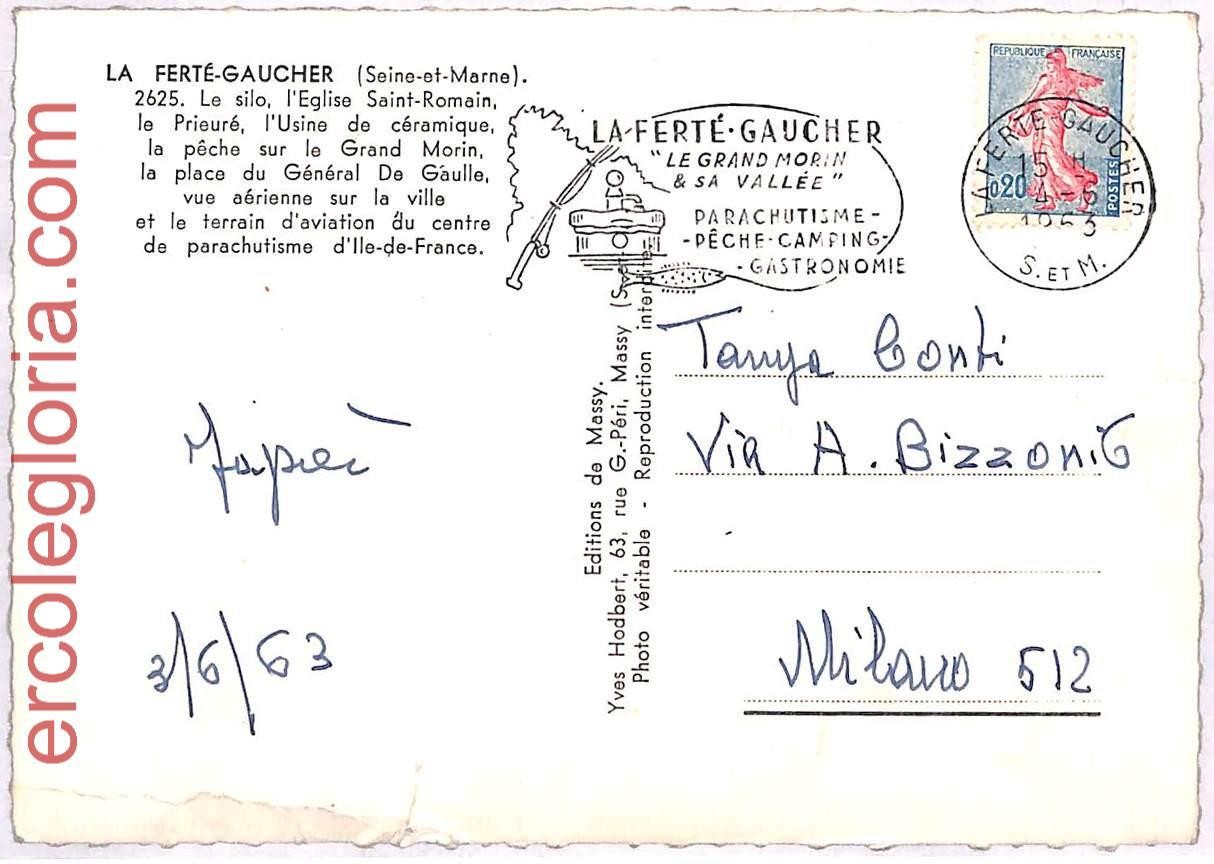 LA FERTÉ-GAUCHER (Seine-et-Marne).
2625. Le silo, l'Eglise Saint-Romain,
le Prieuré, l'Usine de céramique,
la pêche sur le Grand Morin,
la place du Général De Gaulle,
vue aérienne sur la ville
et le terrain d'aviation du centre
de parachutisme d'Ile-de-France.
LA·FERTÉ·GAUCHER
"LE GRAND MORIN
& SA VALLÉE"
PARACHUTISME-
-PÊCHE·CAMPING-
-GASTRONOMIE
REPUBLIQUE FRANÇAISE
0,20
POSTES
LA FERTE-GAUCHER
15 H
4-6
1963
S. ET M.
Editions de Massy.
Yves Hodbert, 63, rue G.-Péri, Massy
Photo véritable - Reproduction interdite
3/6/63
Tanya Conti
Via A. Bizzoni 6
Milano 512
ercolegloria.com